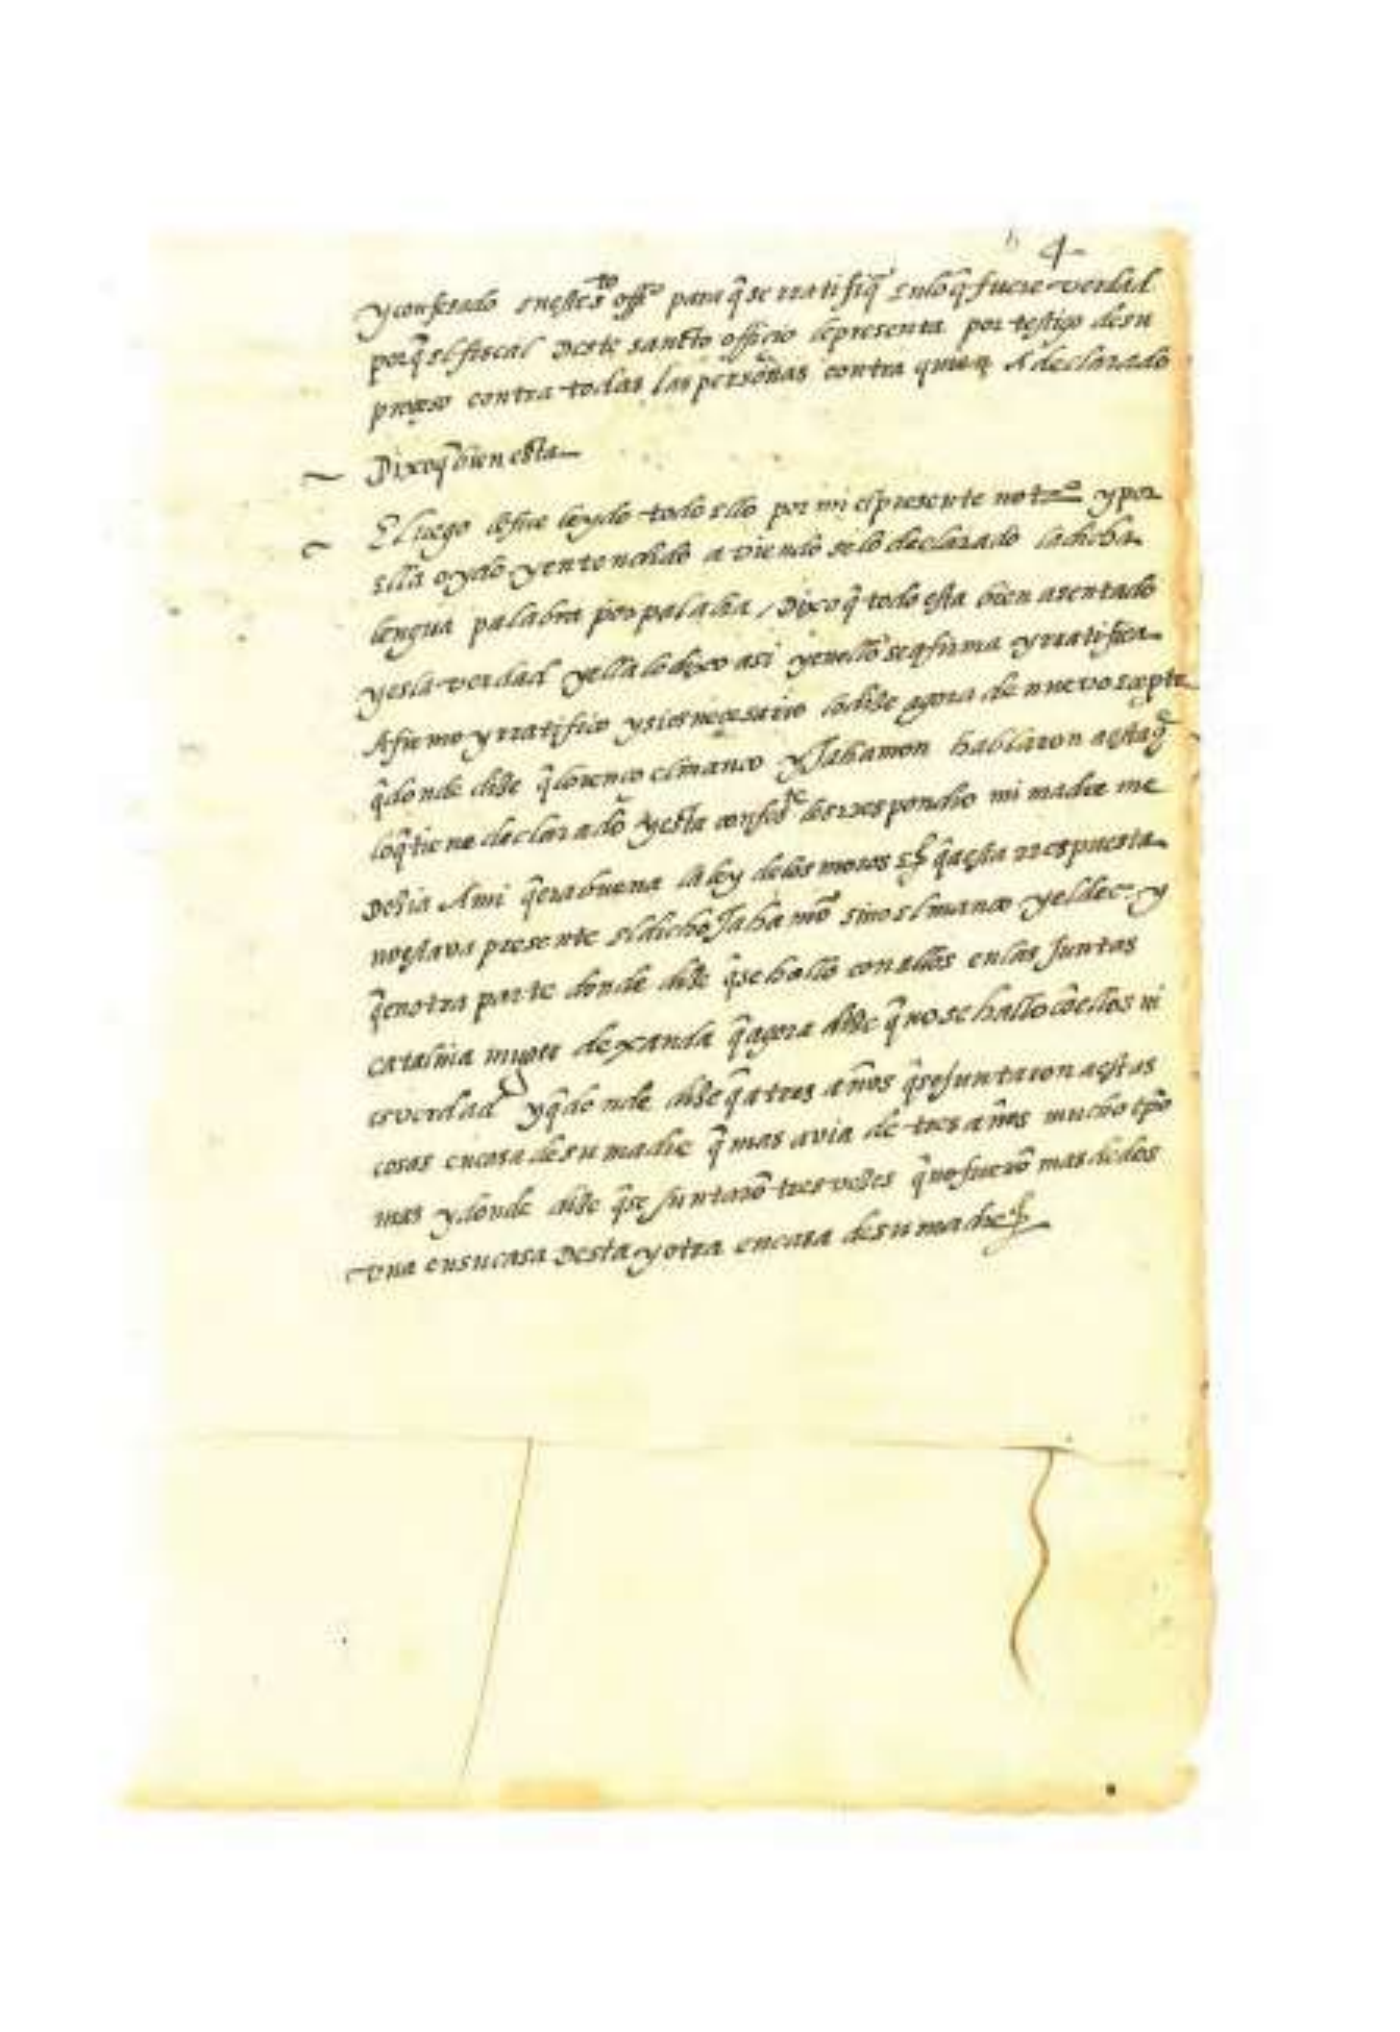 4
y confesado en este s.to off.o para q̃ se rratifiq̃ en lo q̃ fuere verdad
porq̃ el fiscal deste sancto officio le presenta por testigo de su
proçeso contra todas las personas contra quien A declarado
Dixo q̃ bien esta
E luego le fue leydo todo ello por mi el presente not.o y por
ella oydo y entendido aviendoselo declarado la dicha
lengua palabra por palabra / Dixo q̃ todo esta bien asentado
y es la verdad y ella lo dixo asi y en ello se afirma y rratifica
Afirmo y rratifico y si es neçesario lo dize agora de nuevo eçepto
q̃ donde dize q̃ lorenço el manco y Jahamon hablaron a esta
lo q̃ tiene declarado y esta les rrespondio mi madre me
dezia A mi q̃ era buena la ley de los moros q̃ a esta rrespuesta
no estava presente el dicho Jahamõ sino el manco y el dec. y
q̃ en otra parte donde dize q̃ se hallo con ellos en las juntas
catalina muger de xanda q̃ agora dize q̃ no se hallo cõ ellos ni
es verdad y q̃ donde dize q̃ a tres años q̃ se juntaron a estas
cosas en casa de su madre q̃ mas avia de tres años mucho tpõ
mas y donde dize q̃ se juntarõ tres vezes q̃ no fuerõ mas de dos
una en su casa desta y otra en casa de su madre